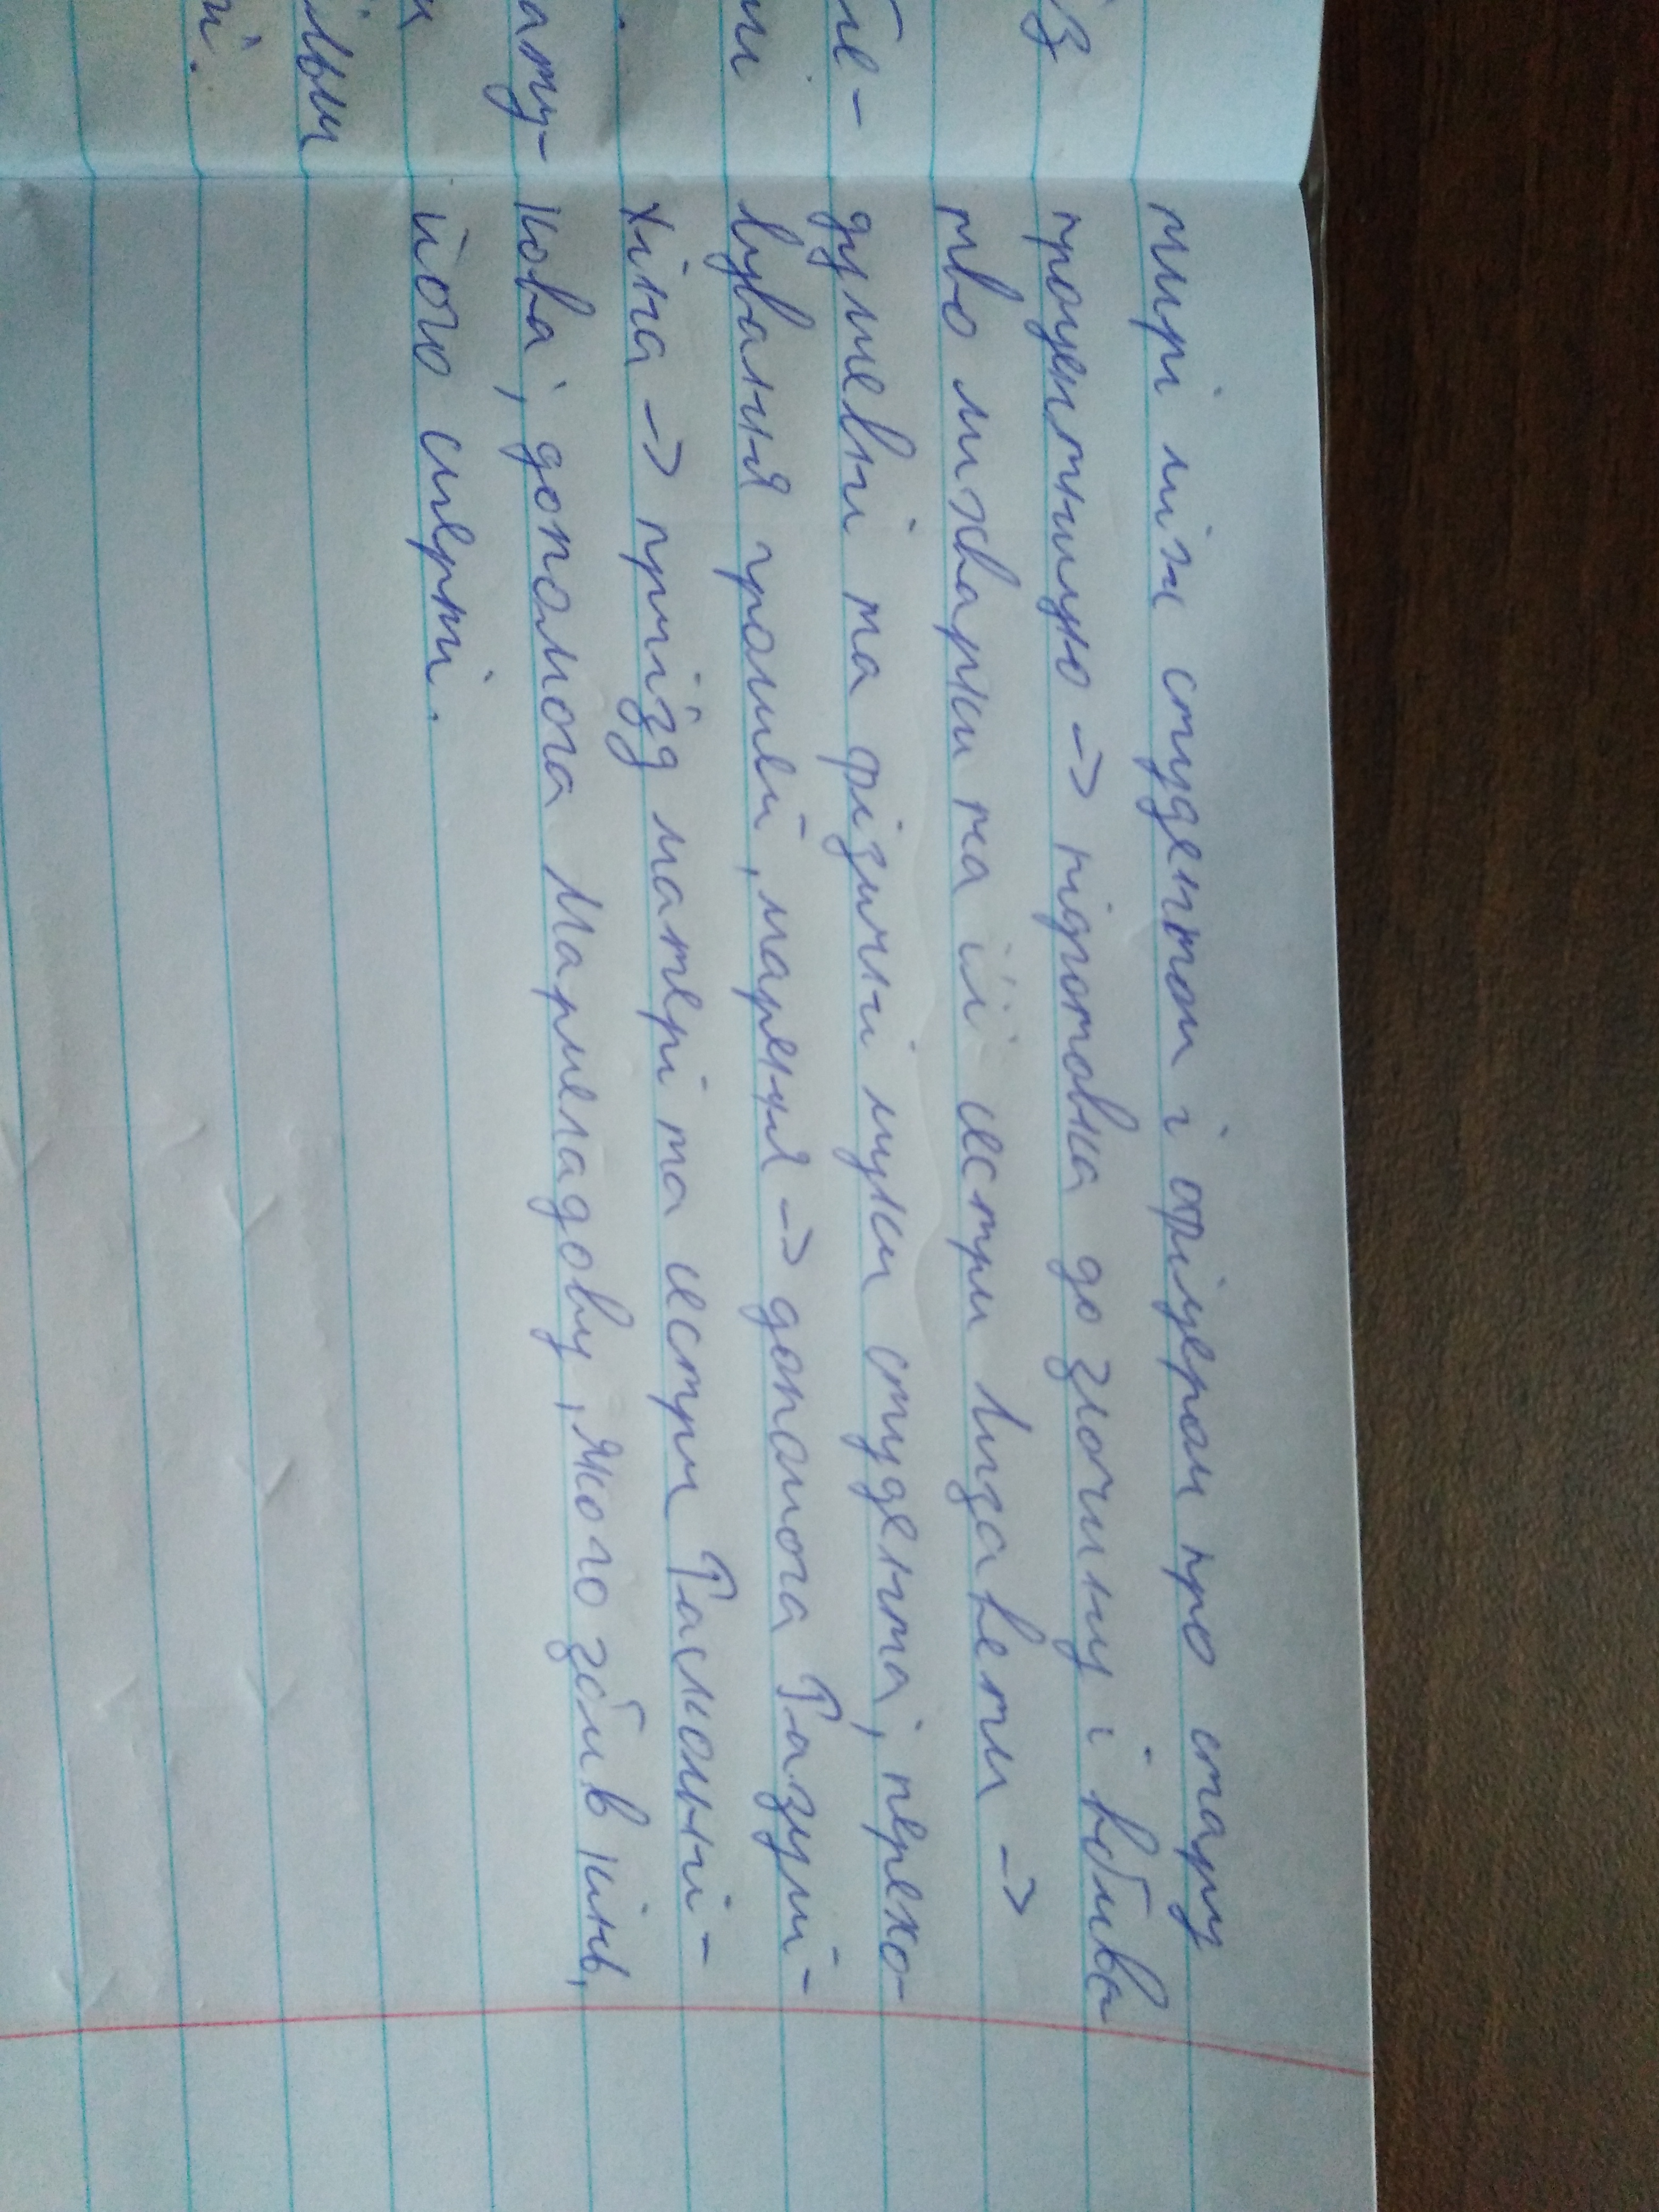 тирі між студентом і офіцером про стару
процентницю -> підготовка до злочину і вбивс
тво лихварки та її сестри Лизавети ->
душевні та фізичні муки студента, перехо-
вування грошей, марення -> допомога Разумі-
хіна -> приїзд матері та сестри Раскольні-
кова, допомога Мармеладову, якого збив кінь,
його смерті.